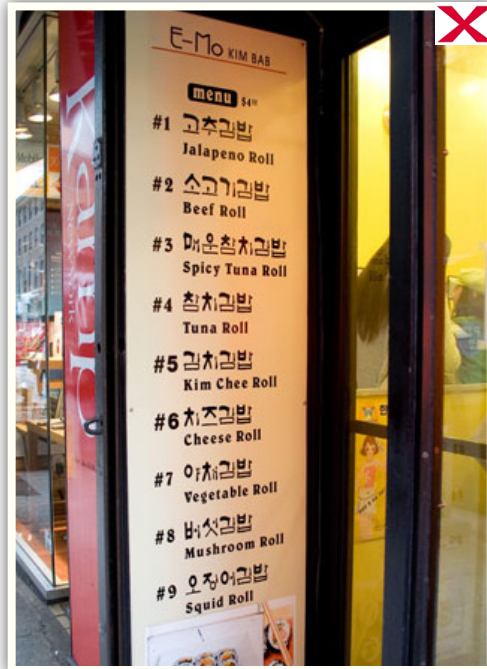 E-Mo KIM BAB
menu $4⁰⁰
#1 고추김밥
Jalapeno Roll
#2 소고기김밥
Beef Roll
#3 매운참치김밥
Spicy Tuna Roll
#4 참치김밥
Tuna Roll
#5 김치김밥
Kim Chee Roll
#6 치즈김밥
Cheese Roll
#7 야채김밥
Vegetable Roll
#8 버섯김밥
Mushroom Roll
#9 오징어김밥
Squid Roll